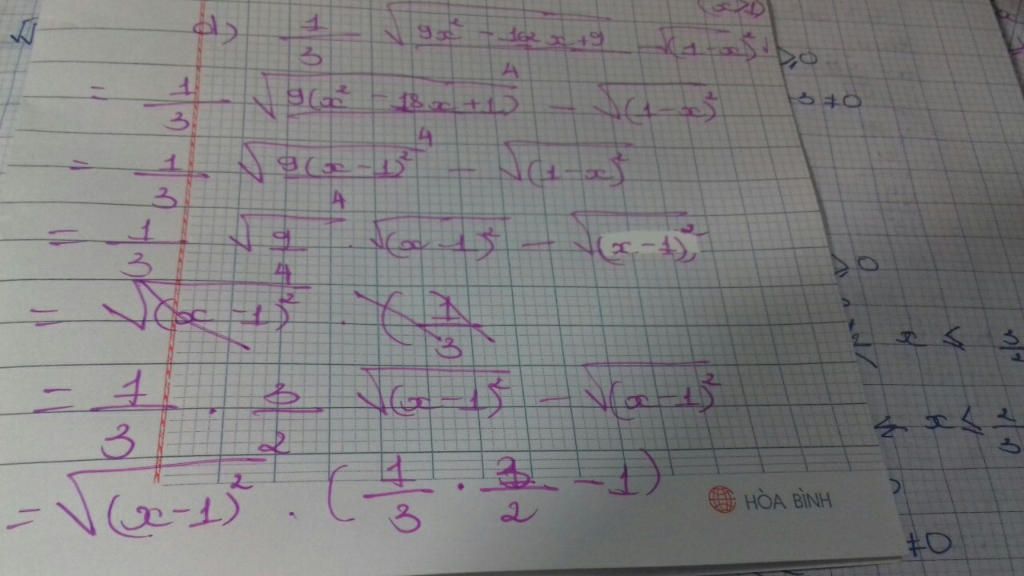 (x>1)
d) 1/3 √(9x² - 18x+9)/4 - √(1-x)²
= 1/3 √(9(x² - 18x+1))/4 - √(1-x)²
= 1/3 √(9(x-1)²)/4 - √(1-x)²
= 1/3 √9/4 . √(x-1)² - √(x-1)²
= √(x-1)² . (1/3)
= 1/3 . 3/2 √(x-1)² - √(x-1)²
= √(x-1)² . (1/3 . 3/2 - 1)
HÒA BÌNH
≥0
3 ≠0
≥0
x ≤ 3/2
≤ x ≤ 2/3
≠0